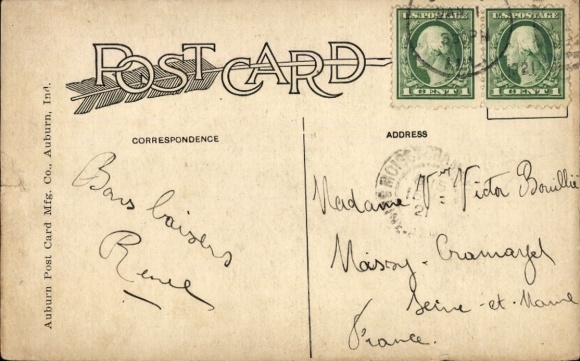 POST CARD
U.S. POSTAGE
1 CENT 1
U.S. POSTAGE
1 CENT 1
CORRESPONDENCE
ADDRESS
Auburn Post Card Mfg. Co., Auburn, Ind.
Bons baisers
Renee
Madame Vve Victor
Moissy-Cramayel
Seine-et-Marne
France.